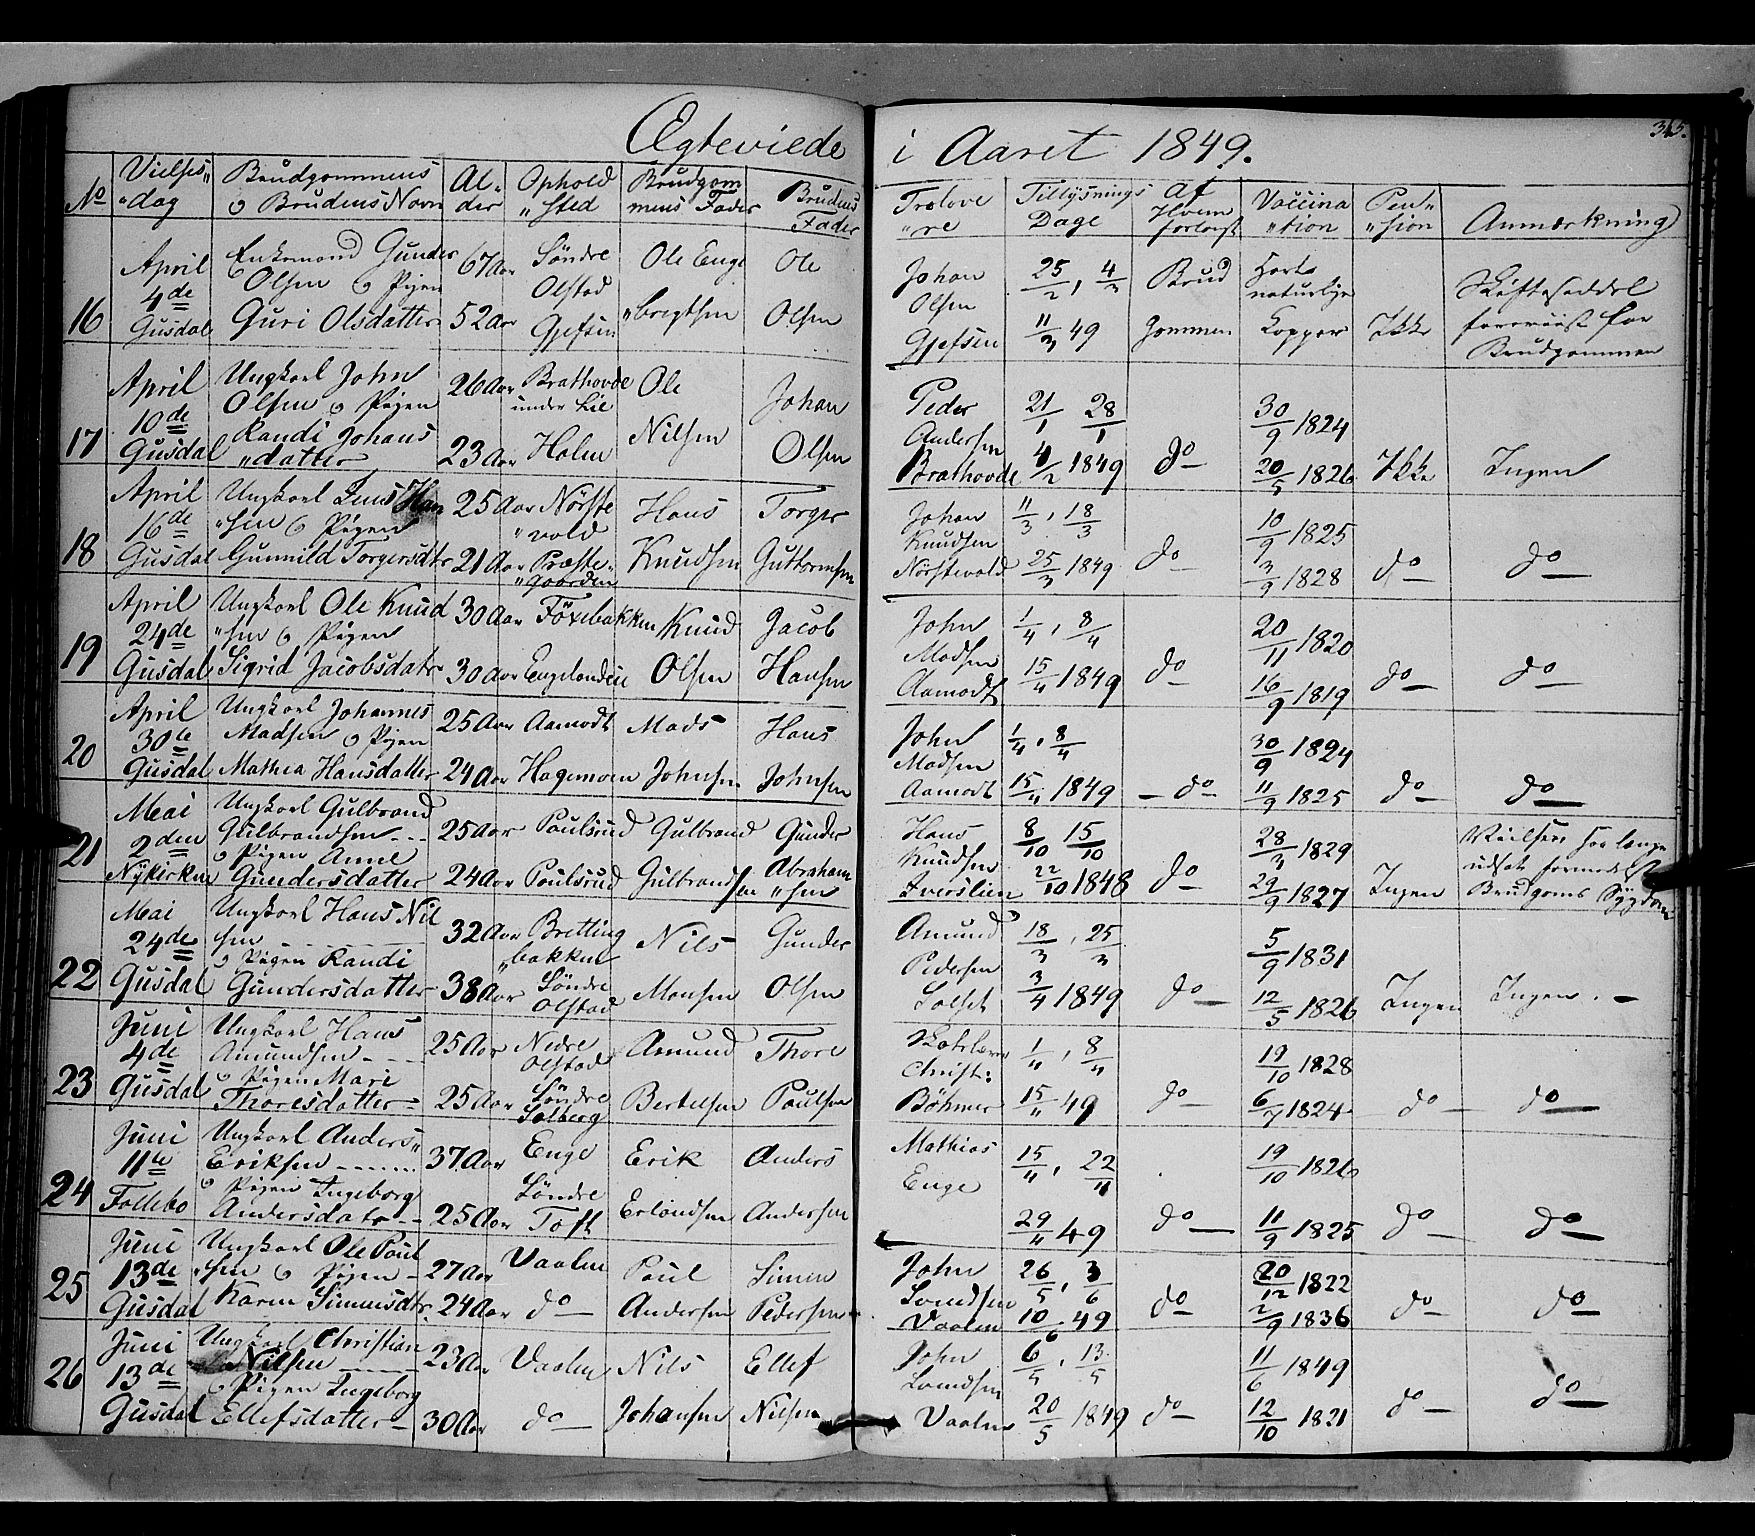 Ægteviede i Aaret 1849.
365.
No
Vielses„
„dag
Brudgommens
og Brudens Navn
Al-
der
Ophold
„sted
Brudgom
mens Fader
Brudens
Fader
Trolove
„re
Tillysnings
Dage
Af
Hvem
forlangt
Vaccina
„tion
Pen„
„sion
Anmærkning
16
April
4de
Gusdal
Enkemand Gunder
Olsen og Pigen
Guri Olsdatter
67 Aar
52 Aar
Söndre
Olstad
Gjefsen
Ole Enge
„bregtsen
Ole
Olsen
Johan
Olsen
Gjefsen
25/2, 4/3
11/3 49
Brud
gommen
Havt
naturlige
Kopper
Ikke
Skifteseddel
foreviist for
Brudgommen
17
April
10de
Gusdal
Ungkarl John
Olsen og Pigen
Randi Johans
„datter
26 Aar
23 Aar
Brathovde
under Lie
Holm
Ole
Nilsen
Johan
Olsen
Peder
Andersen
Brathovde
21/1 28/1
4/2 1849
do
30/9 1824
20/5 1826
Ikke
Ingen
18
April
16de
Gusdal
Ungkarl Jens Han
„sen og Pigen
Gunnild Torgersdtr
25 Aar
21 Aar
Nörste
„vold
Præste-
„gaarden
Hans
Knudsen
Torger
Guttormsen
Johan
Knudsen
Nörstevold
11/3, 18/3
25/3 1849
do
10/9 1825
3/9 1828
do
do
19
April
24de
Gusdal
Ungkarl Ole Knud
„sen og Pigen
Sigrid Jacobsdatr
30 Aar
30 Aar
Föxebakken
Engelandsie
Knud
Olsen
Jacob
Hansen
John
Madsen
Aamodt
1/4, 8/4
15/4 1849
do
20/11 1820
16/9 1819
do
do
20
April
30te
Gusdal
Ungkarl Johannes
Madsen og Pigen
Mathea Hansdatter
25 Aar
24 Aar
Aamodt
Hagemoen
Mads
Johnsen
Hans
Johnsen
John
Madsen
Aamodt
1/4, 8/4
15/4 1849
do
30/9 1824
11/9 1825
do
do
21
Mai
2den
Nykirken
Ungkarl Gulbrand
Gulbrandsen
og Pigen Anne
Gundersdatter
25 Aar
24 Aar
Paulsrud
Paulsrud
Gulbrand
Gulbrandsen
Gunder
Abraham
„sen
Hans
Knudsen
Iverslien
8/10 15/10
22/10 1848
do
28/3 1829
29/9 1827
Ingen
Vielsen saa længe
udsat formedelst
Brudgoms Sygdom
22
Mai
24de
Gusdal
Ungkarl Hans Nil
sen
og Pigen Randi
Gundersdatter
32 Aar
38 Aar
Bretting
„bakken
Söndre
Olstad
Nils
Monsen
Gunder
Olsen
Amund
Pedersen
18/3, 25/3
3/4 1849
do
5/9 1831
12/5 1826
Ingen
Ingen
23
Juni
4de
Gusdal
Ungkarl Hans
Amundsen
og Pigen Mari
Thoresdatter
25 Aar
25 Aar
Nedre
Olstad
Söndre
Solberg
Amund
Bertelsen
Thore
Paulsen
Christ:
Böhmer
1/4, 8/4
15/4 49
do
19/10 1828
6/7 1824
do
do
24
Juni
11te
Follebo
Ungkarl Anders
Eriksen
og Pigen Ingeborg
Andersdatr
37 Aar
25 Aar
Enge
Söndre
Toft
Erik
Erlandsen
Anders
Andersen
Mathias
Enge
15/4, 22/4
29/4 49
do
19/10 1826
11/9 1825
do
do
25
Juni
13de
Gusdal
Ungkarl Ole Paul
„sen og Pigen
Karen Simensdtr
27 Aar
24 Aar
Vaalen
do
Paul
Andersen
Simen
Pedersen
John
Vaalen
26/5, 3/6
10/6 49
do
20/12 1822
2/9 1836
do
do
26
Juni
13de
Gusdal
Ungkarl Christian
Nilsen
og Pigen Ingeborg
Ellefsdatter
23 Aar
30 Aar
Vaalen
do
Nils
Johansen
Ellef
Nilsen
John
Vaalen
6/5, 13/5
20/5 1849
do
11/6 1849
12/10 1821
do
do